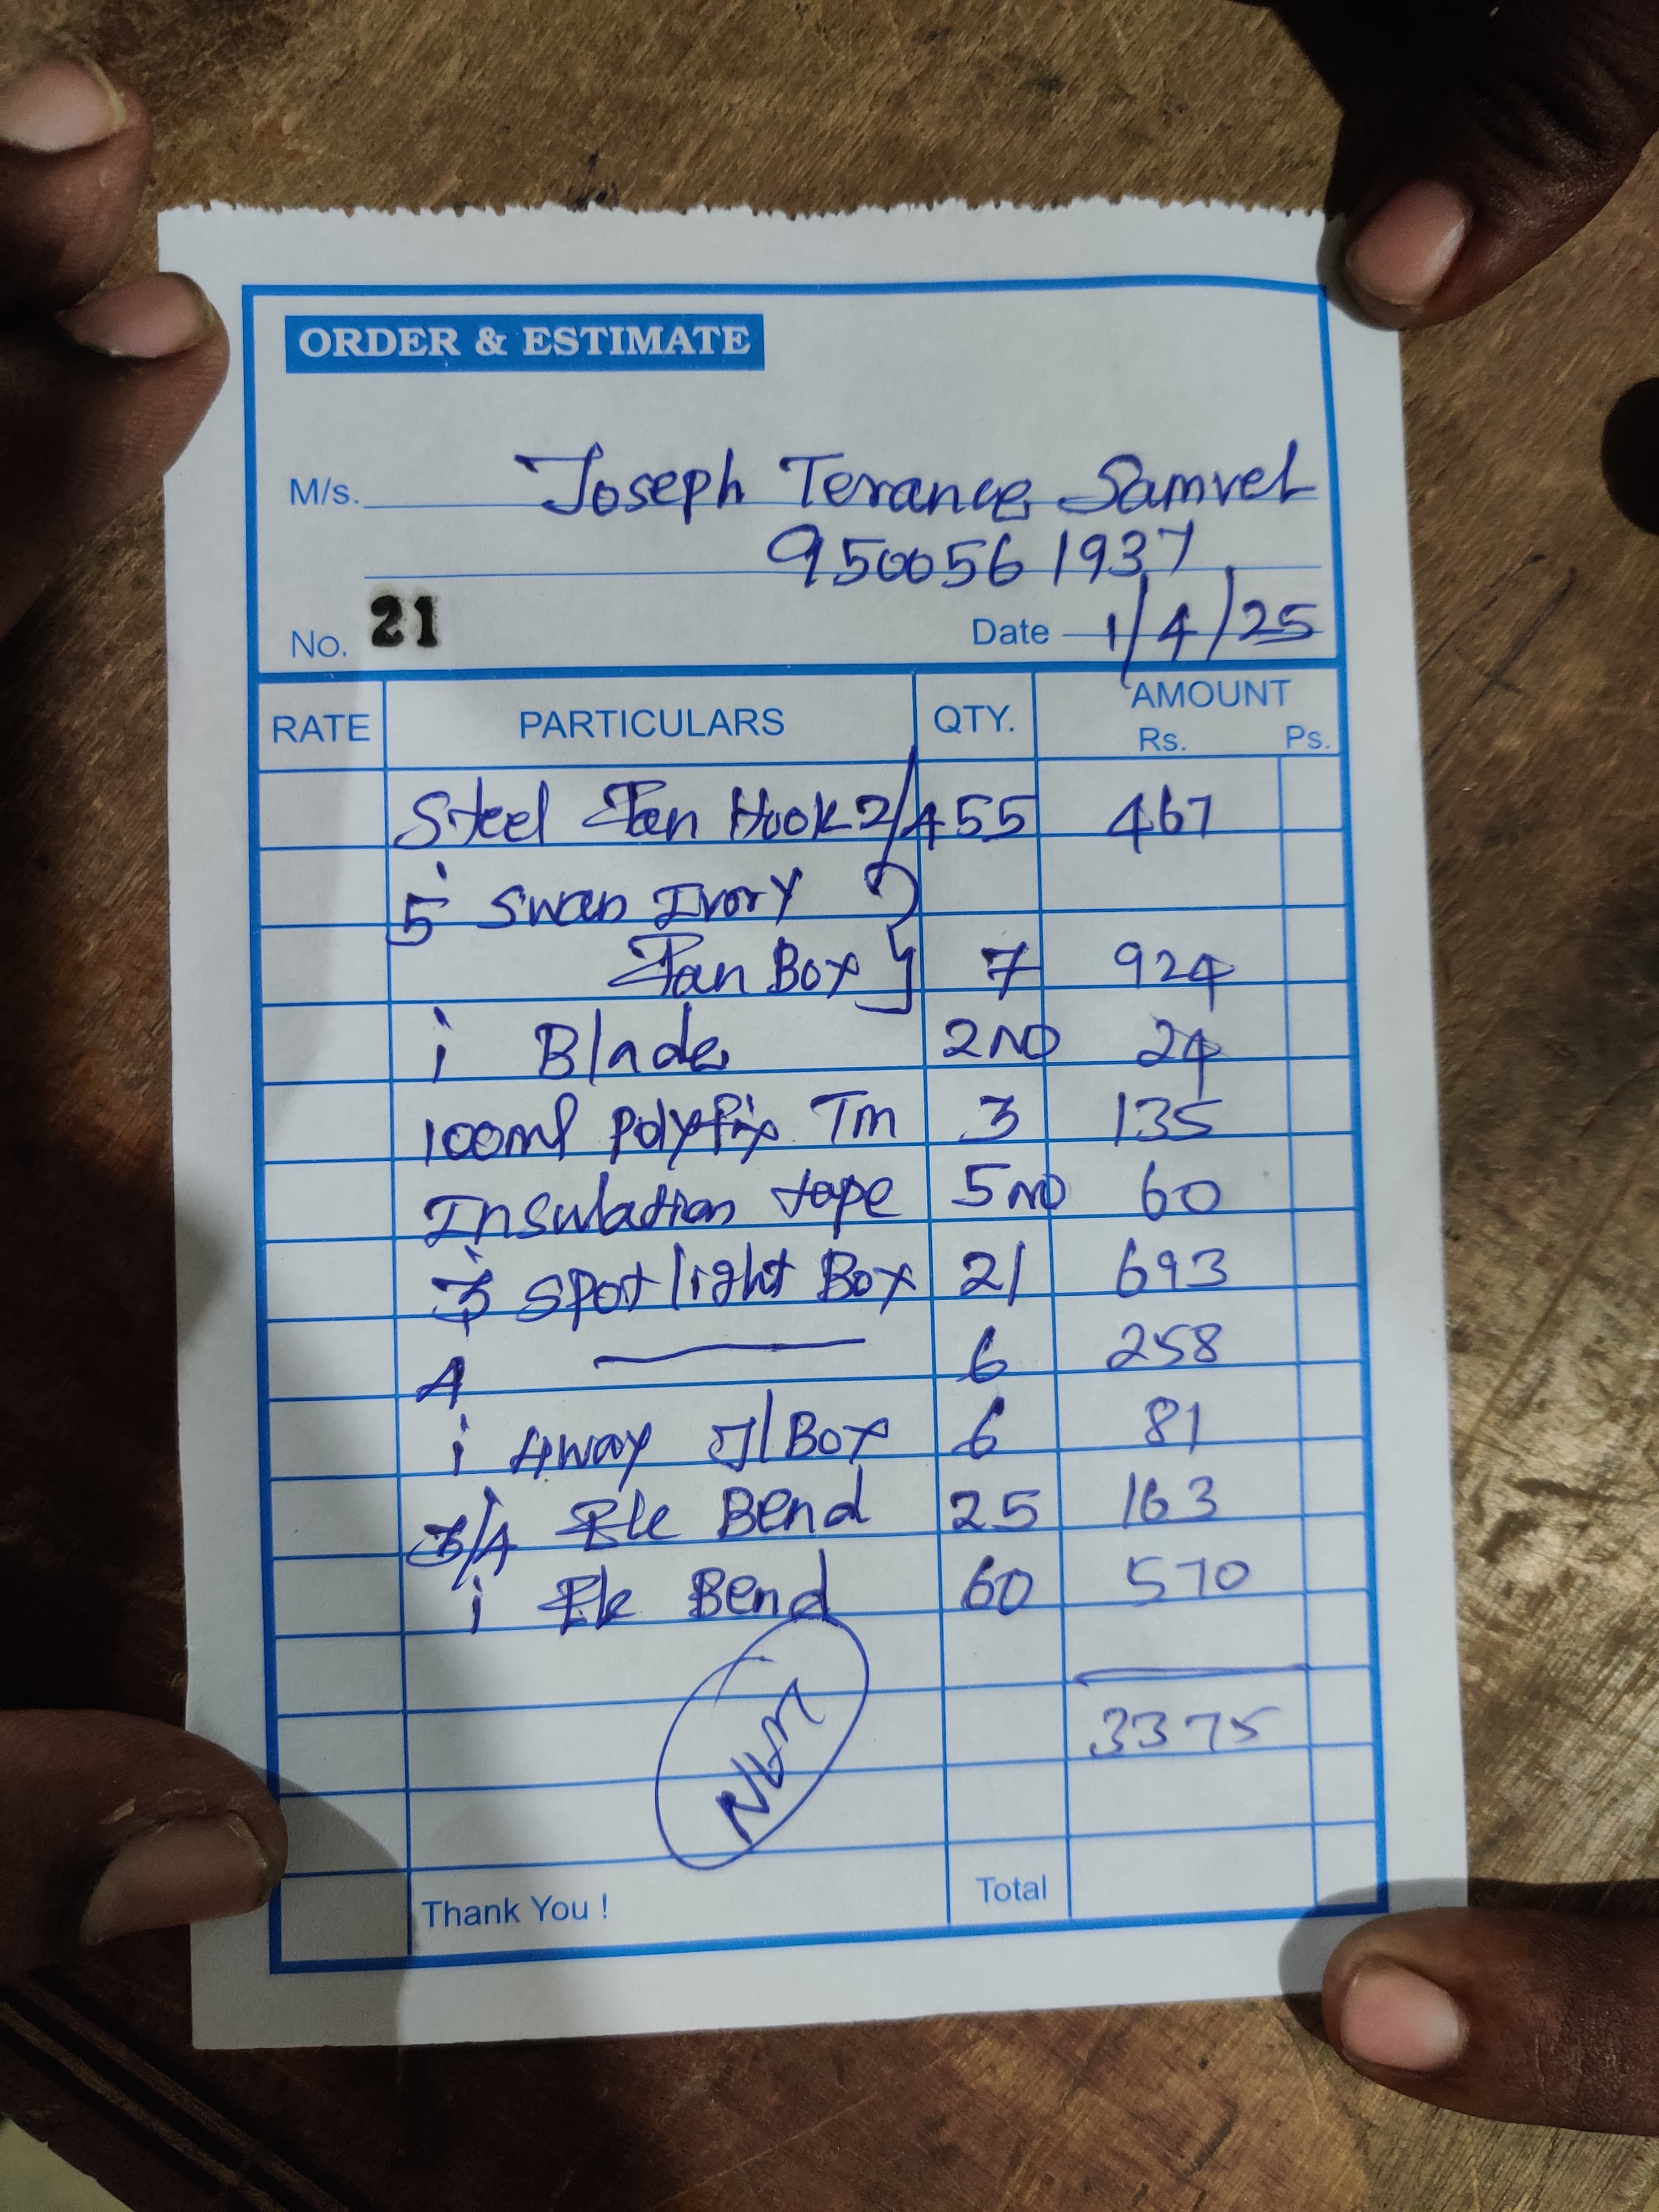 ORDER & ESTIMATE
M/s. Joseph Terance Samvel
9500561937
No. 21 Date 1/4/25
RATE PARTICULARS QTY. AMOUNT
Rs. Ps.
Steel Fan Hook 2/455 467
5 Swan Ivory
Fan Box 7 924
1 Blade 2 NO 24
100ml Polyfix Tm 3 135
Insulation tape 5 NO 60
3 Spot light Box 21 693
4 — 6 258
1 4way J/Box 6 81
3/4 Ele Bend 25 163
1 Ele Bend 60 570
3375
Thank You ! Total